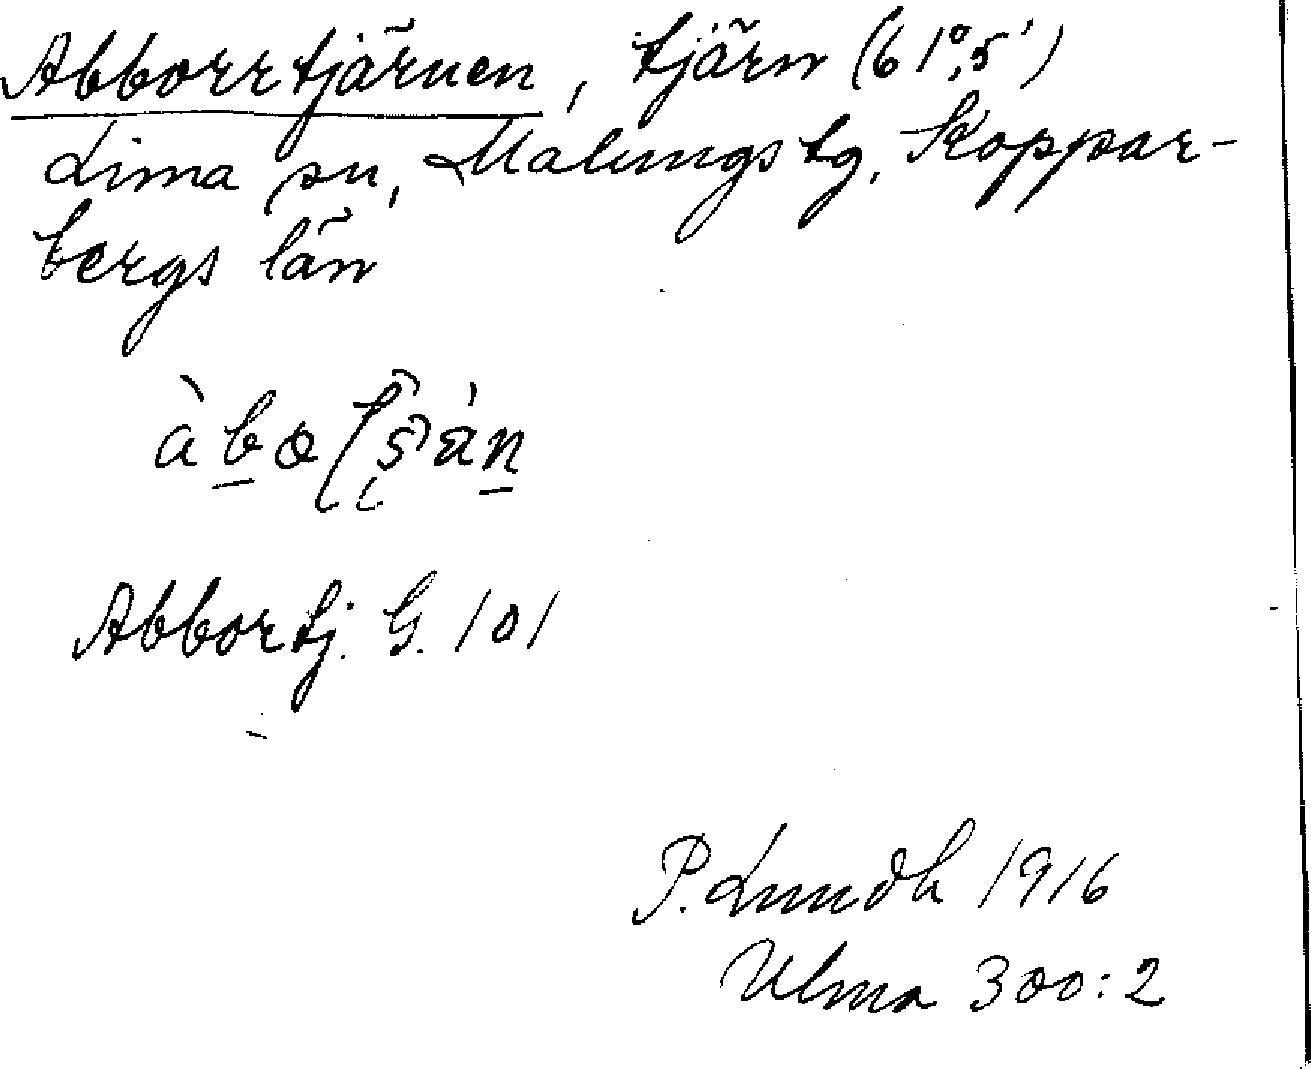 Abborrtjärnen, tjärn (61°,5')
Lima sn, Malungs tg, Koppar-
bergs län
Abbortj. G. 101
P. Lundh 1916
Ulma 300:2